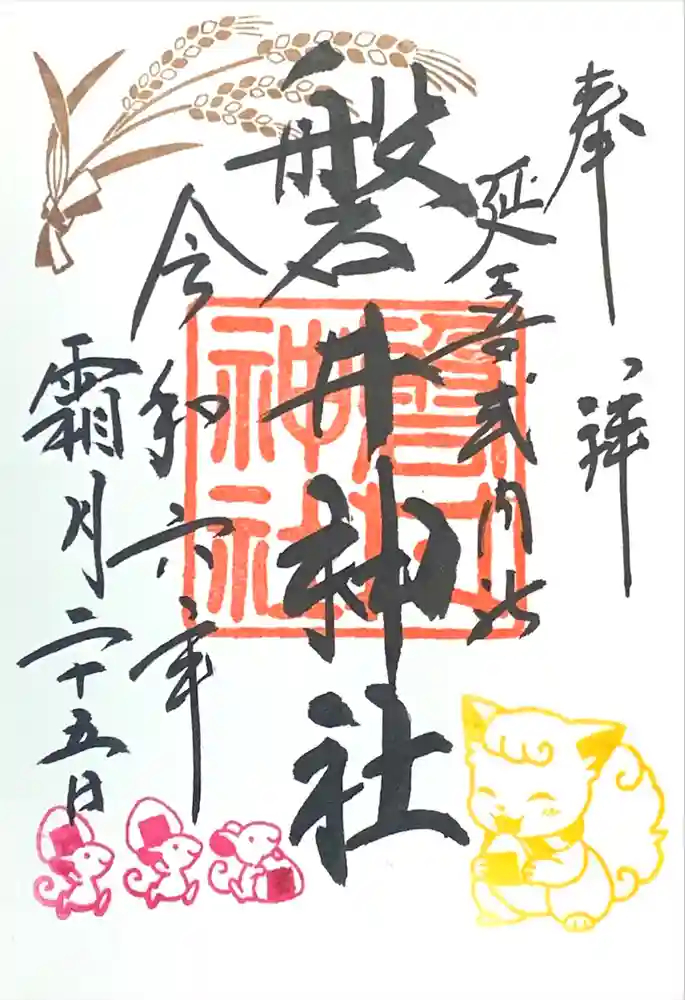 奉拝
延喜式内社
磐井神社
令和六年
霜月二十五日
磐井神社